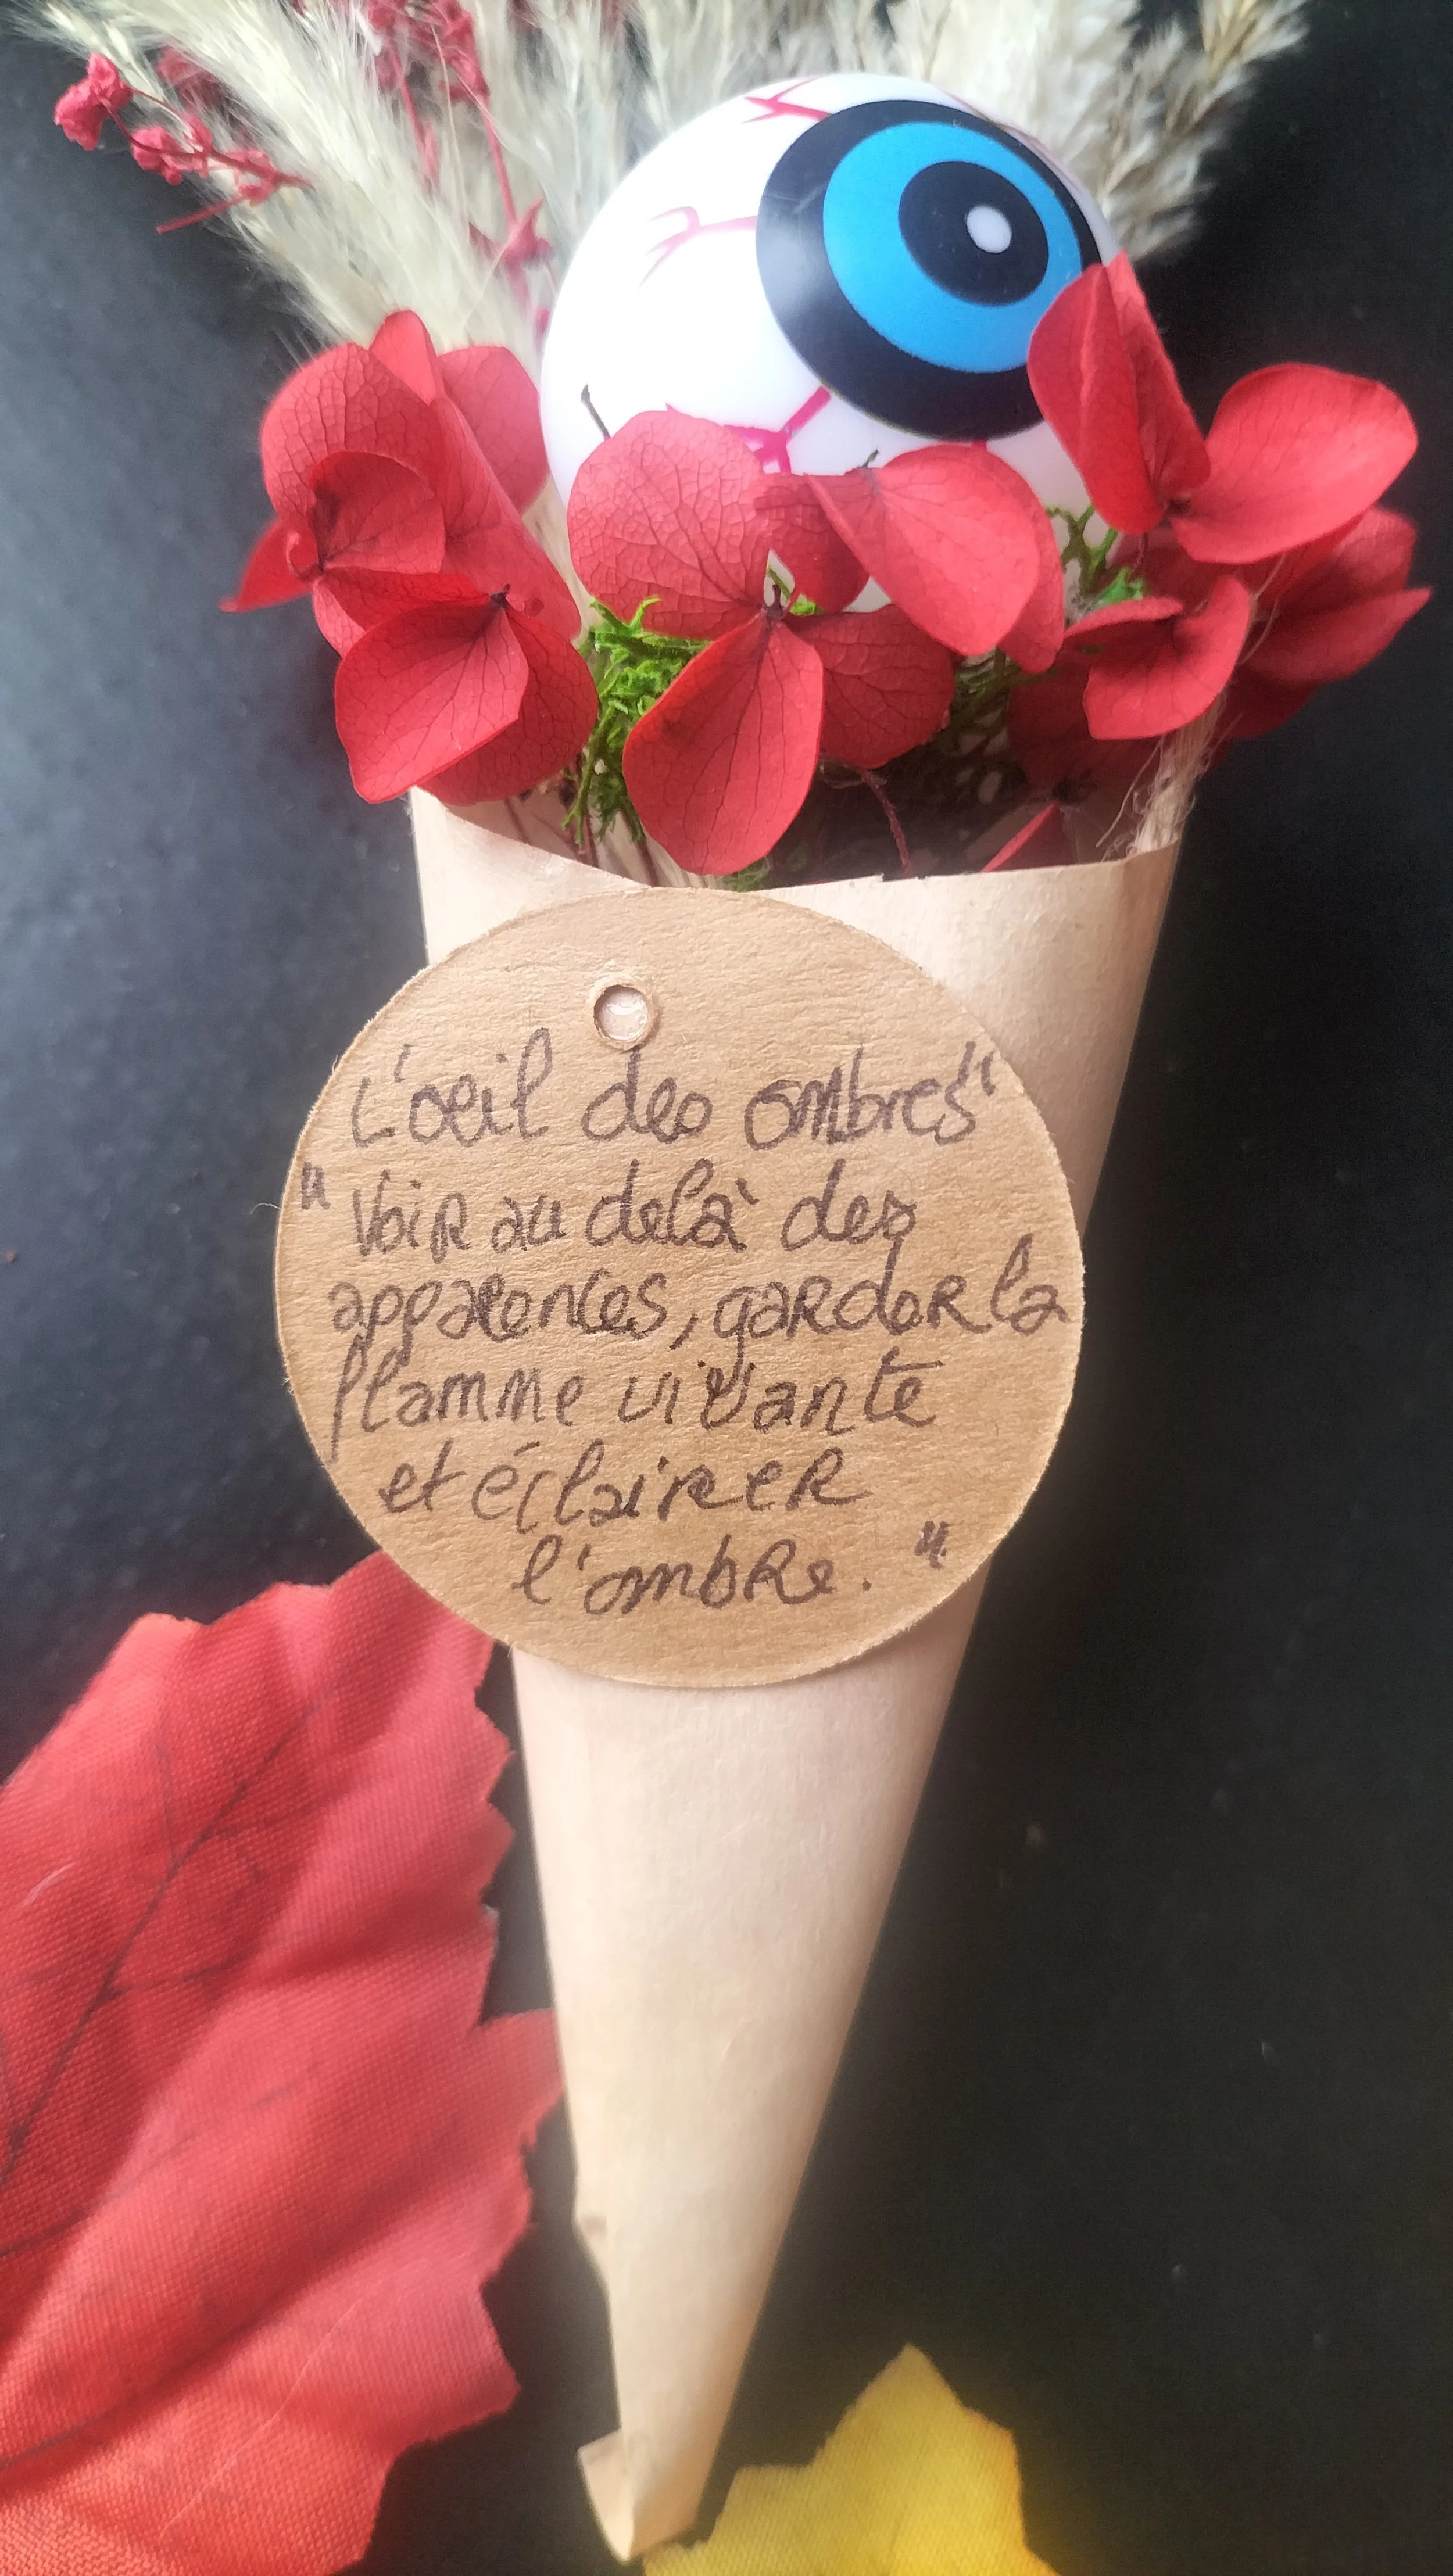 L'oeil des ombres"
"Voir au delà des
apparences, garder la
flamme vivante
et éclairer
l'ombre."